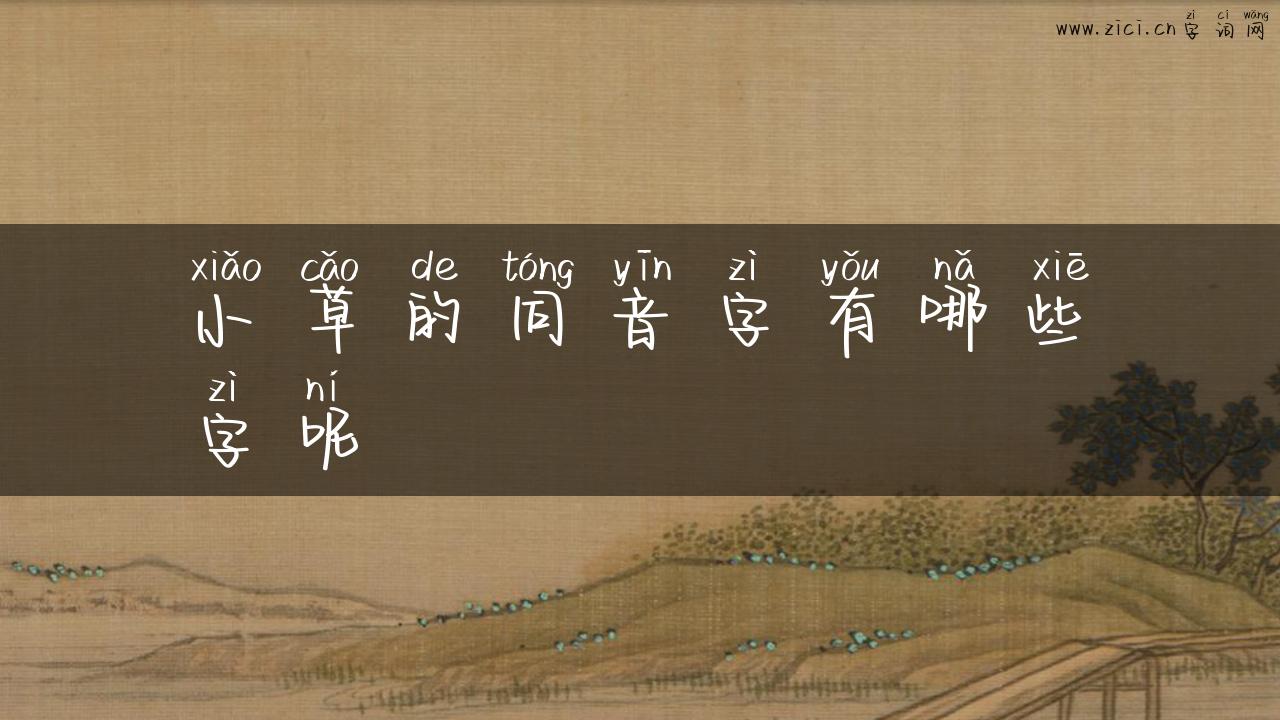 zì cí wǎng
www.zici.cn 字词网
xiǎo cǎo de tóng yīn zì yǒu nǎ xiē
小草的同音字有哪些
zì ní
字呢